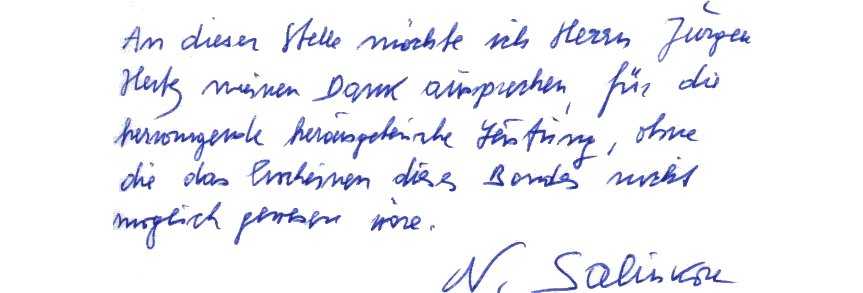 An dieser Stelle möchte ich Herrn Jürgen
Hertz meinen Dank aussprechen, für die
hervorragende herausgeberische Leistung, ohne
die das Erscheinen dieses Bandes nicht
möglich gewesen wäre.
N.